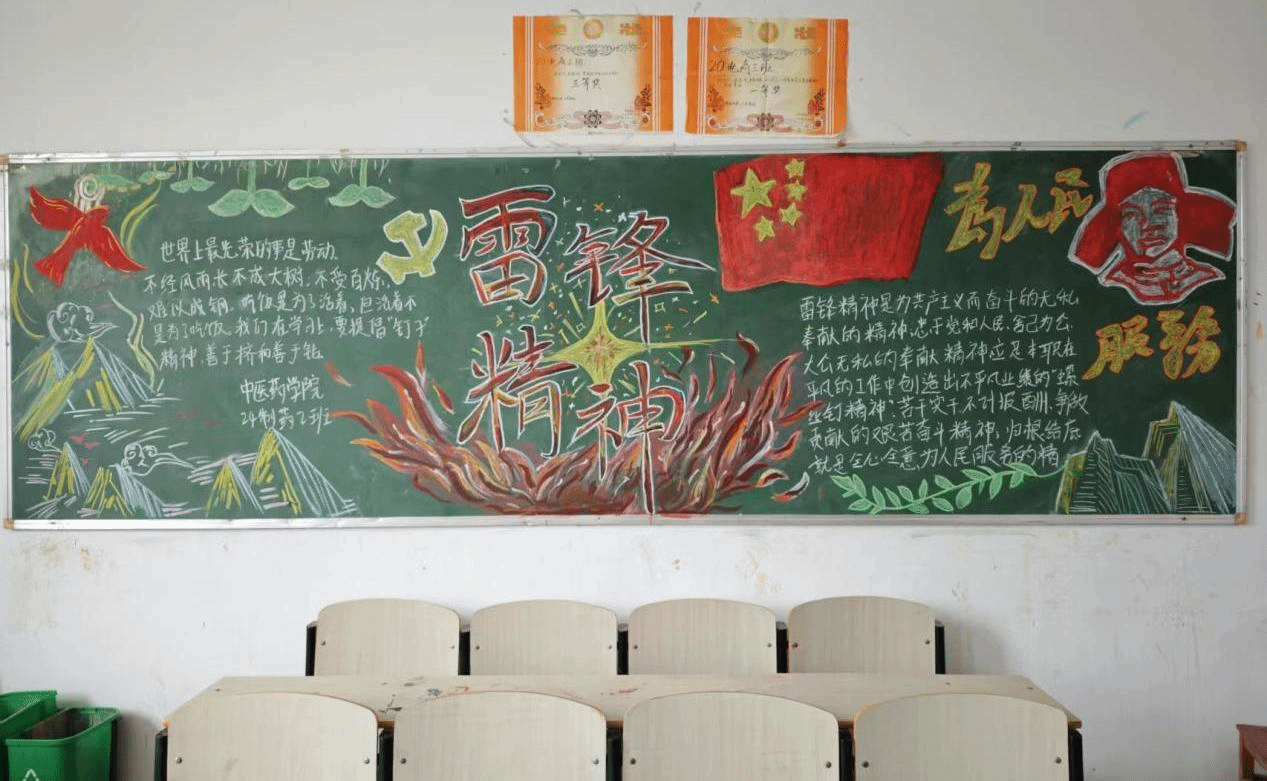 20电商三班
三等奖
20电商三班
一等奖
世界上最光荣的事是劳动.
不经风雨长不成大树.不受百炼.
难以成钢.吃饭是为了活着,但活着不
是为了吃饭.我们在学习上,要提倡"钉子"
精神善于挤和善于钻
中医药学院
24制药2班
雷锋
精神
为人民
服务
雷锋精神是为共产主义而奋斗的无私
奉献的精神,忠于党和人民,舍己为公.
大公无私的奉献精神立足本职在
平凡的工作中创造出不平凡业绩的"螺
丝钉精神".苦干实干不计报酬.争做
贡献的艰苦奋斗精神,归根结底
就是全心全意为人民服务的精